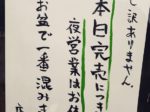 し訳ありません
本日完売につき
夜営業はお休
お盆で一番混みま